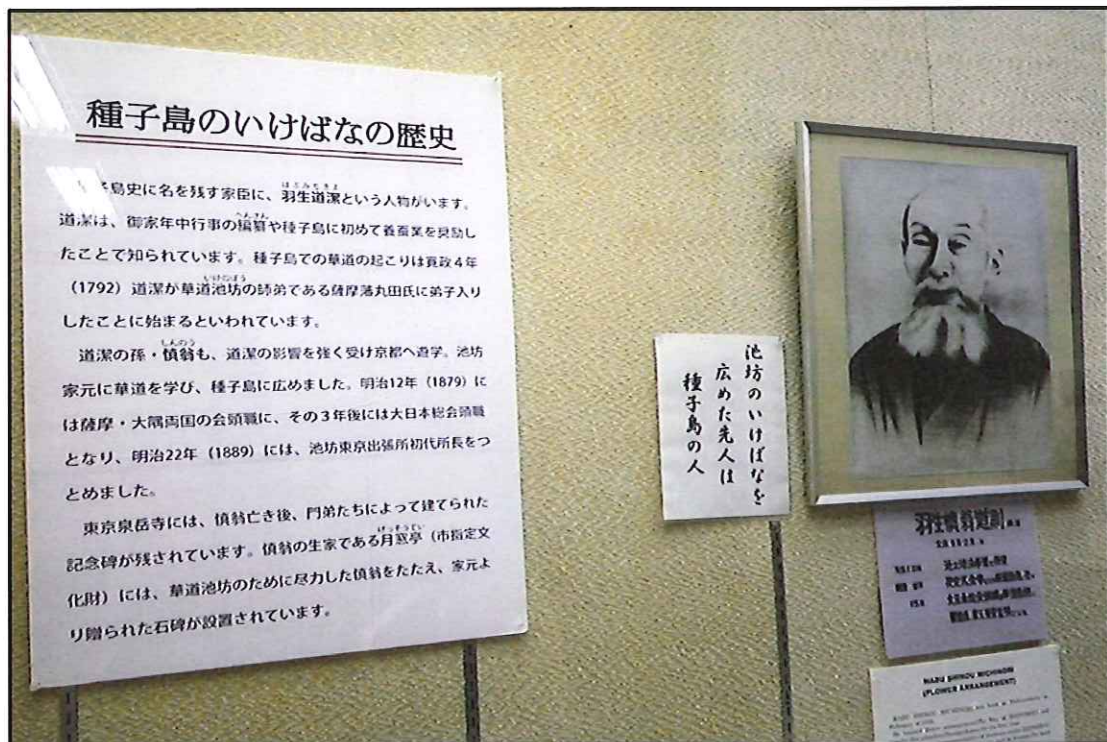 種子島のいけばなの歴史
子島史に名を残す家臣に、羽生道潔という人物がいます。
道潔は、御家年中行事の編纂や種子島に初めて養蚕業を奨励し
たことで知られています。種子島での華道の起こりは寛政4年
（1792）道潔が華道池坊の師弟である薩摩藩丸田氏に弟子入り
したことに始まるといわれています。
道潔の孫・慎翁も、道潔の影響を強く受け京都へ遊学。池坊
家元に華道を学び、種子島に広めました。明治12年（1879）に
は薩摩・大隅両国の会頭職に、その3年後には大日本総会頭職
となり、明治22年（1889）には、池坊東京出張所初代所長をつ
とめました。
東京泉岳寺には、慎翁亡き後、門弟たちによって建てられた
記念碑が残されています。慎翁の生家である月窓亭（市指定文
化財）には、華道池坊のために尽力した慎翁をたたえ、家元よ
り贈られた石碑が設置されています。
池坊のいけばなを
広めた先人は
種子島の人
羽生慎翁道則
NABU SHINOU MICHINORI
(FLOWER ARRANGEMENT)